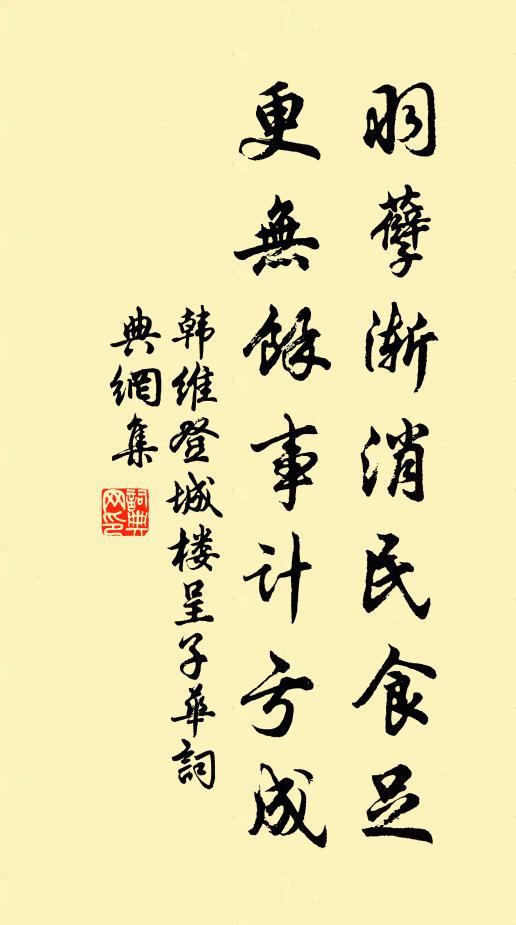 羽孽渐消民食足
更無餘事计亏成
韩维登城楼呈子華詞
典網集
詞典网印